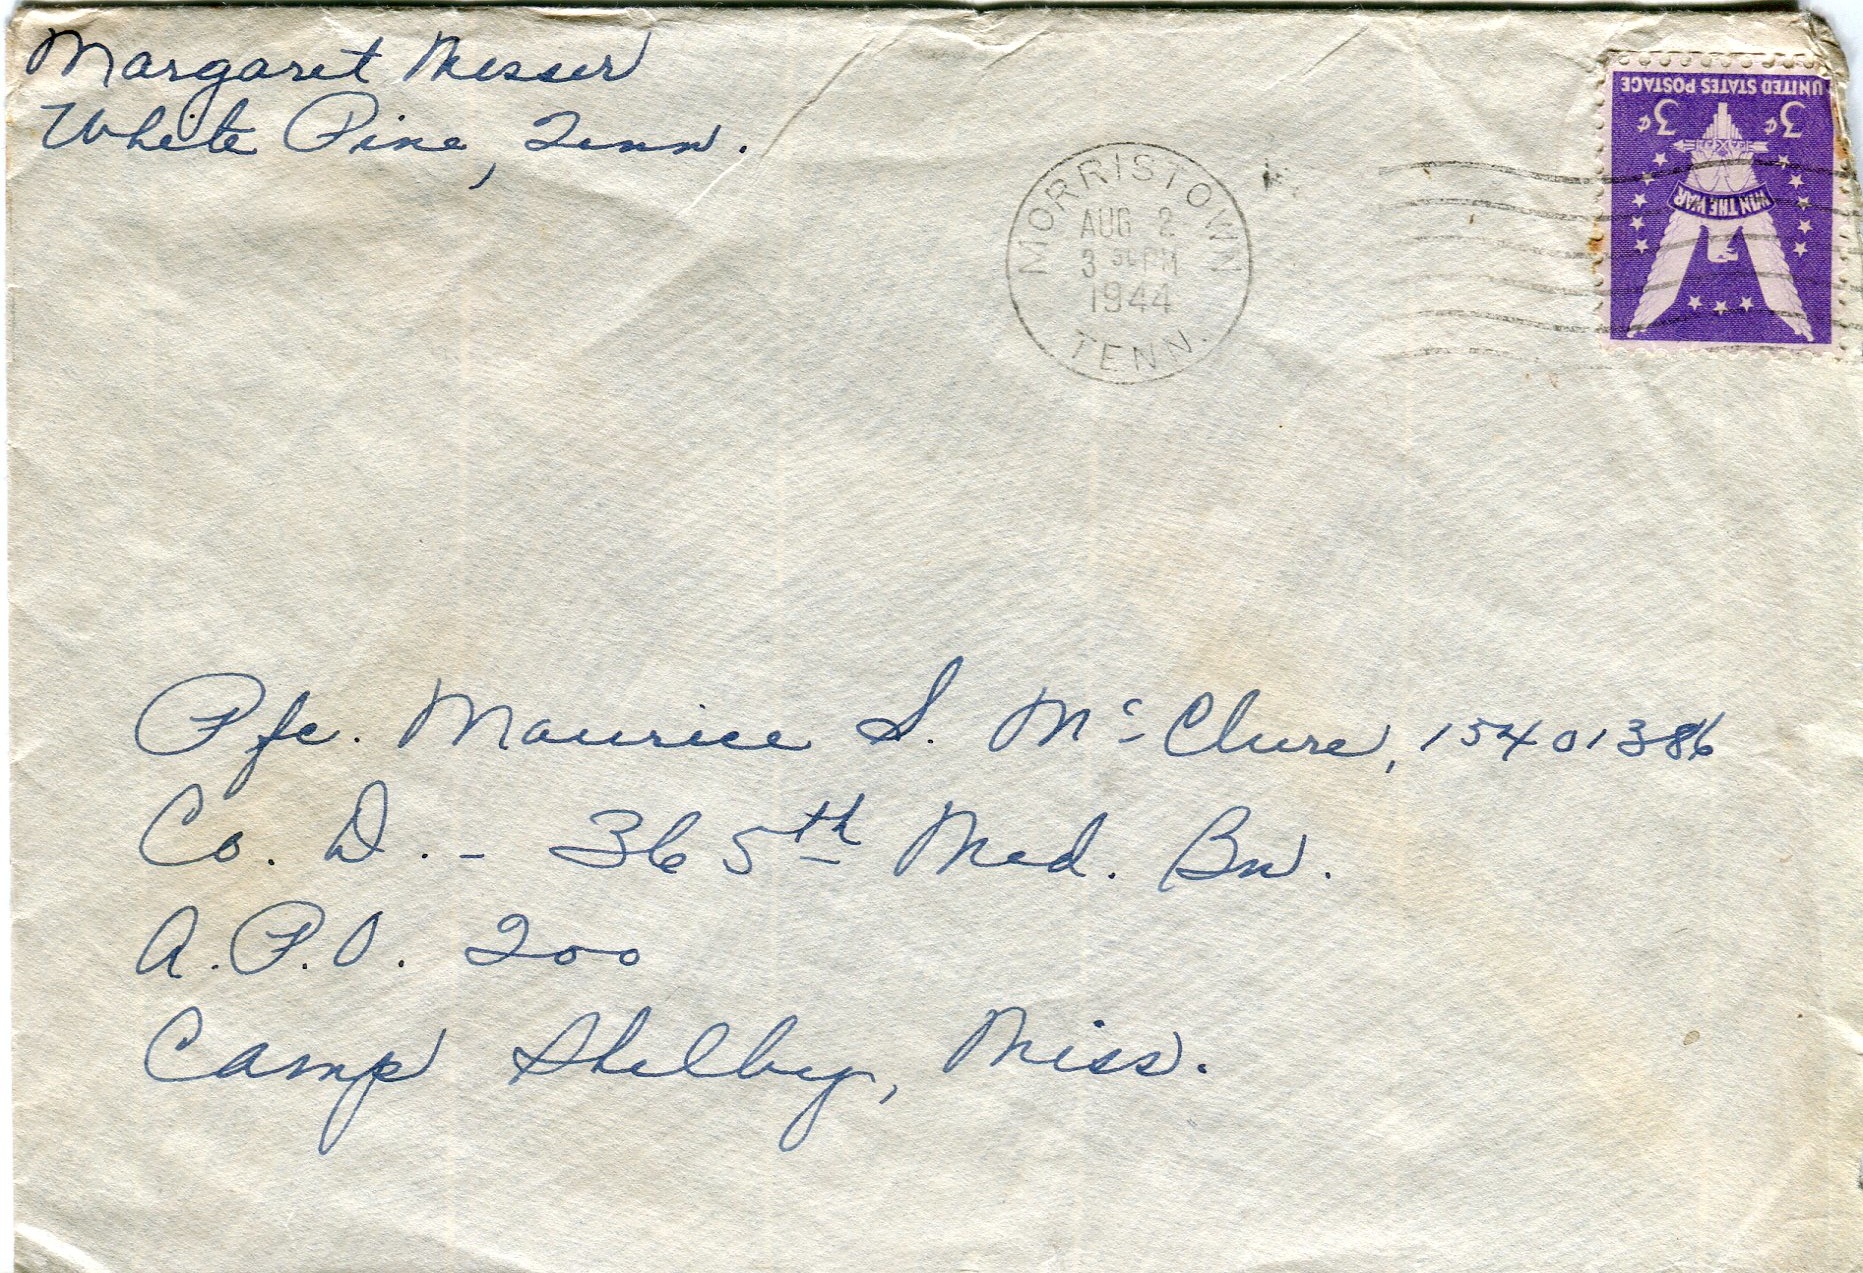 Margaret Messer
White Pine, Tenn.
MORRISTOWN
AUG 2
3 30 PM
1944
TENN.
UNITED STATES POSTAGE
3¢ 3¢
WIN THE WAR
Pfc. Maurice S. McClure, 15401386
Co. D. - 365th Med. Bn.
A.P.O. 200
Camp Shelby, Miss.